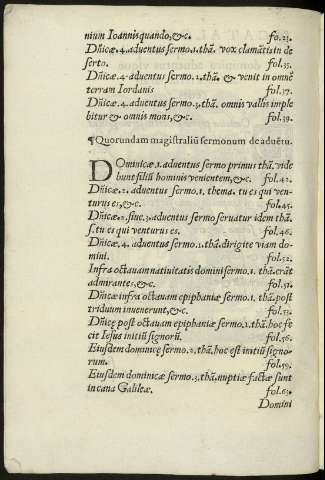 nium Ioannis quando, &c. fo.23.
Dñicæ.4.aduentus sermo.1.thã. vox clamãtis in de
serto. fol.35.
Dñicæ.4.aduentus sermo.2.thã. & venit in omnẽ
terram Iordanis fol.37.
Dñicæ.4.aduentus sermo.3.thã. omnis vallis imple
bitur & omnis mons, &c. fol.39.
¶Quorundam magistraliũ sermonum de aduẽtu.
DOminicæ.1.aduentus sermo primus thã.vide
bunt filiũ hominis venientem, &c. fol.42.
Dñicæ.2.aduentus sermo.1.thema. tu es qui ven-
turus es, &c. fol.45.
Dñicæ.2.siue.3.aduentus sermo seruatur idem thã
s.tu es qui venturus es. fol.46.
Dñicæ.4.aduentus sermo.1.thã.dirigite viam do-
mini. fol.52.
Infra octauam natiuitatis domini sermo.1.thã.erãt
admirantes, &c. fol.51.
Dñicæ infra octauam epiphaniæ sermo.1.thã.post
triduum inuenerunt, &c. fol.53.
Dñicę post octauam epiphaniæ sermo.1.thã.hoc fe
cit Iesus initiũ signorũ. fol.56.
Eiusdem dominicę sermo.2.thã.hoc est initiũ signo-
rum. fol.59.
Eiusdem dominicæ sermo.3.thã.nuptiæ factæ sunt
in cana Galileæ. fol.63.
Domini